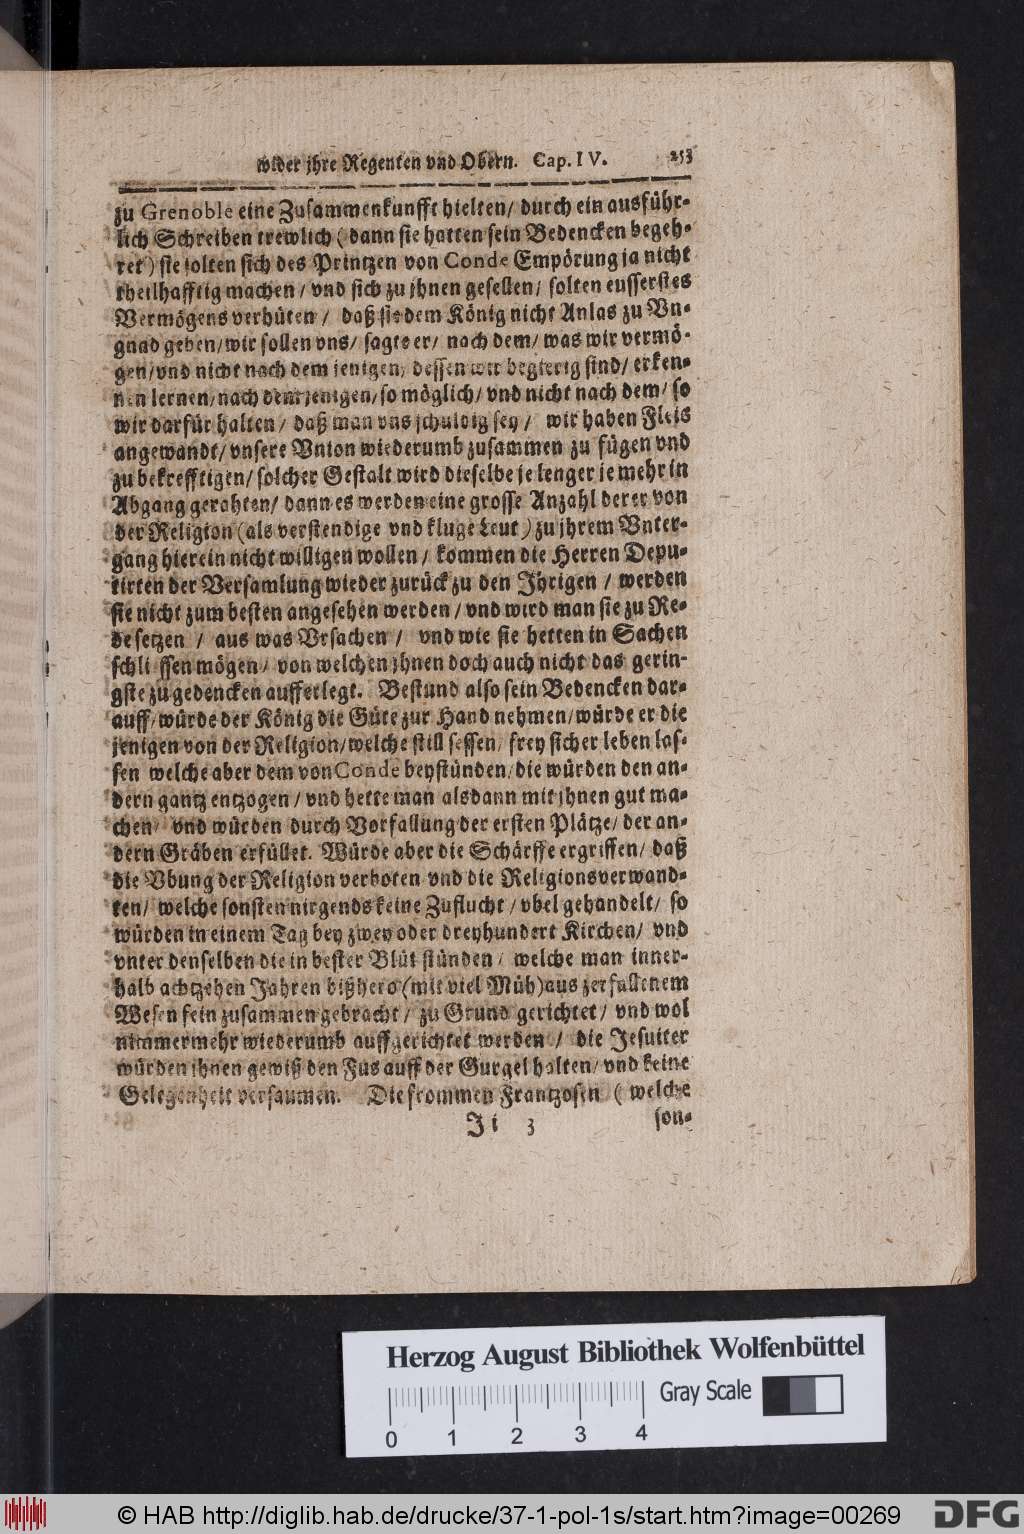 wider jhre Regenten vnd Obern. Cap. IV. 253
zu Grenoble eine Zusammenkunfft hielten/ durch ein ausführ-
lich Schreiben trewlich (dann sie hatten sein Bedencken begeh-
ret) sie solten sich des Printzen von Conde Empörung ja nicht
theilhafftig machen/ vnd sich zu jhnen gesellen/ solten eusserstes
Vermögens verhüten/ daß sie dem König nicht Anlas zu Vn-
gnad geben/ wir sollen vns/ sagte er/ nach dem/ was wir vermö-
gen/ vnd nicht nach dem jenigen/ dessen wir begierig sind/ erken-
nen lernen/ nach dem jenigen/ so möglich/ vnd nicht nach dem/ so
wir darfür halten/ daß man vns schuldig sey/ wir haben Fleis
angewandt/ vnsere Vnion wiederumb zusammen zu fügen vnd
zu bekrefftigen/ solcher Gestalt wird dieselbe je lenger je mehr in
Abgang gerahten/ dann es werden eine grosse Anzahl derer von
der Religion (als verstendige vnd kluge Leut) zu jhrem Vnter-
gang hierein nicht willigen wollen/ kommen die Herren Depu-
tirten der Versamlung wieder zurück zu den Jhrigen/ werden
sie nicht zum besten angesehen werden/ vnd wird man sie zu Re-
de setzen/ aus was Vrsachen/ vnd wie sie hetten in Sachen
schli ssen mögen/ von welchen jhnen doch auch nicht das gerin-
gste zu gedencken aufferlegt. Bestund also sein Bedencken dar-
auff/ würde der König die Güte zur Hand nehmen/ würde er die
jenigen von der Religion/ welche still sessen/ frey sicher leben las-
sen welche aber dem von Conde beystünden/ die würden den an-
dern gantz entzogen/ vnd hette man alsdann mit jhnen gut ma-
chen/ vnd würden durch Vorfallung der ersten Plätze/ der an-
dern Gräben erfüllet. Würde aber die Schärffe ergriffen/ daß
die Vbung der Religion verboten vnd die Religionsverwand-
ten/ welche sonsten nirgends keine Zuflucht/ vbel gehandelt/ so
würden in einem Tag bey zwey oder dreyhundert Kirchen/ vnd
vnter denselben die in bester Blüt stünden/ welche man inner-
halb achtzehen Jahren bißhero (mit viel Müh) aus zerfallenem
Wesen fein zusammen gebracht/ zu Grund gerichtet/ vnd wol
nimmermehr wiederumb auffgerichtet werden/ die Jesuiter
würden jhnen gewiß den Fus auff der Gurgel halten/ vnd keine
Gelegenheit versaumen. Die frommen Frantzosen (welche
Ji 3 son-
Herzog August Bibliothek Wolfenbüttel
Gray Scale
0 1 2 3 4
© HAB http://diglib.hab.de/drucke/37-1-pol-1s/start.htm?image=00269
DFG